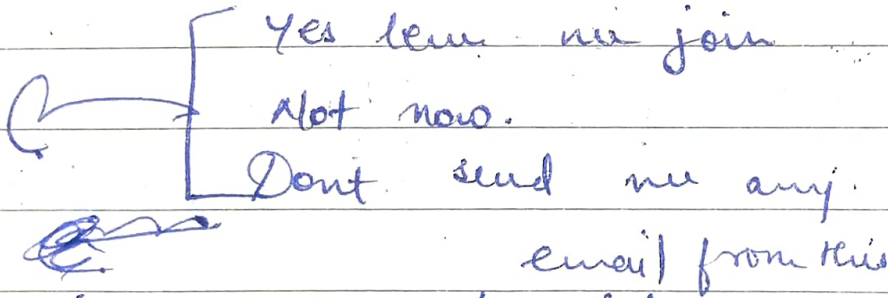 Yes let me join
Not now.
Dont send me any.
email from this